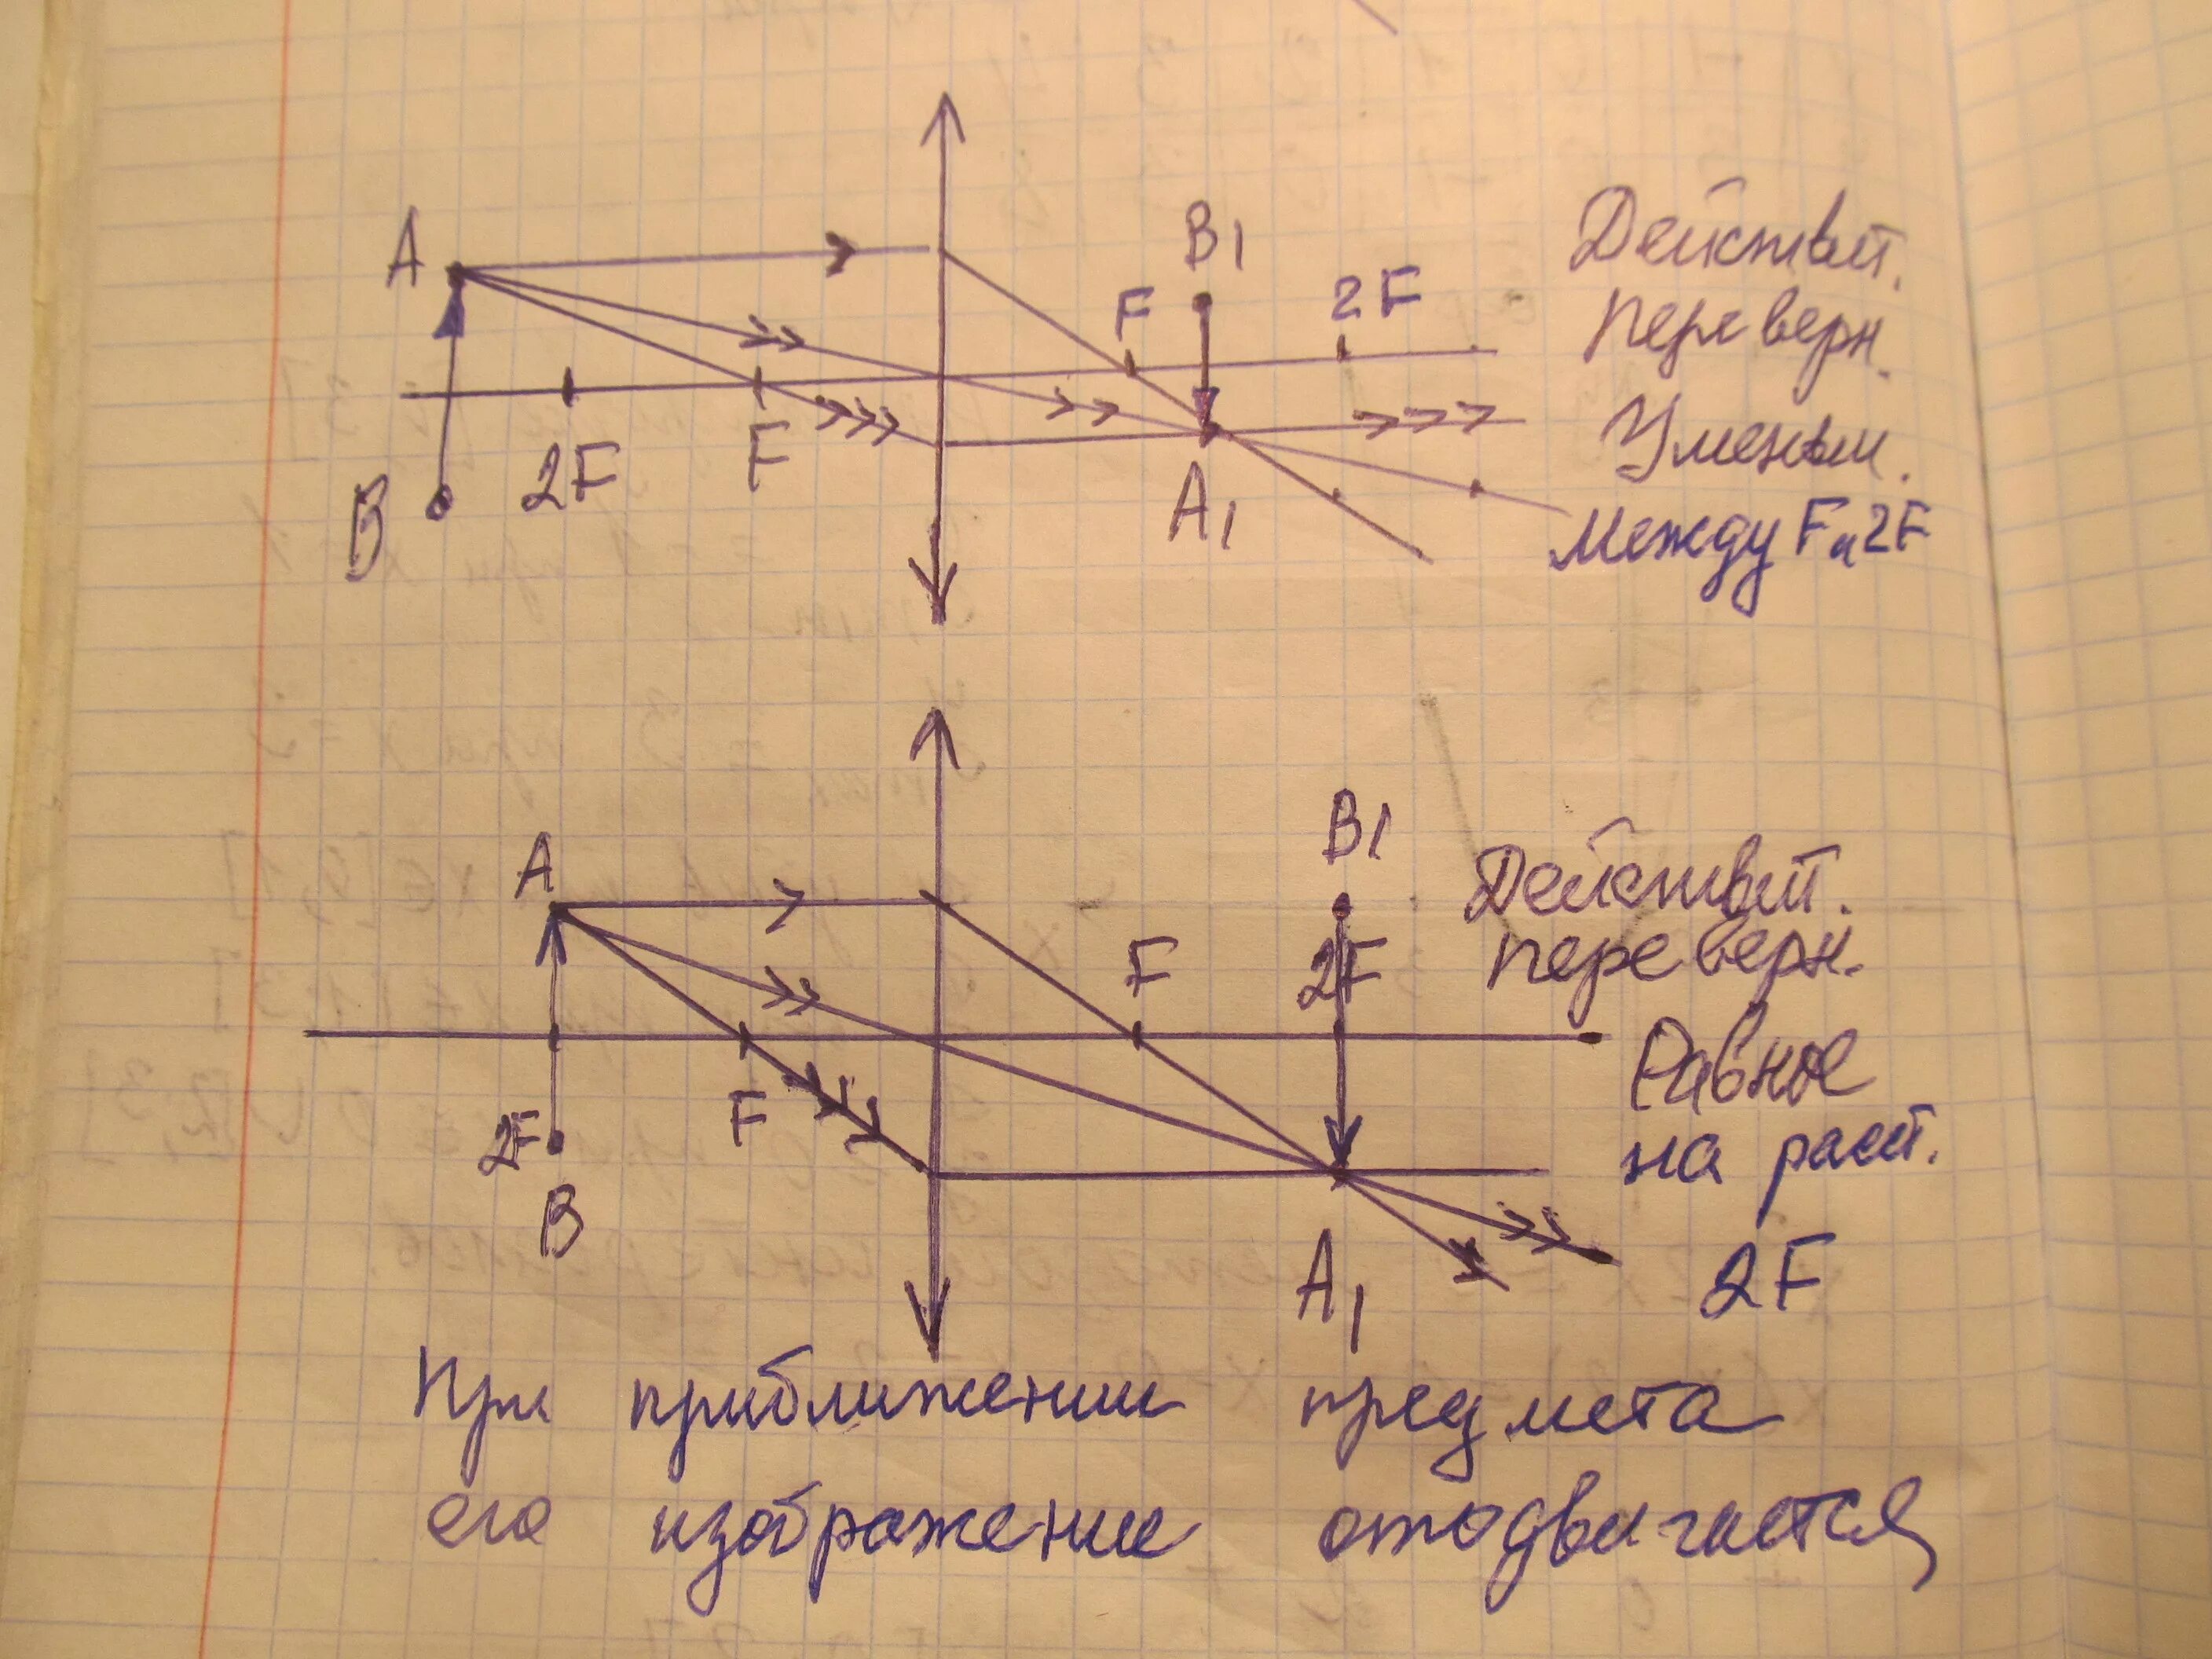 A
B1
F
2F
2F
F
B
A1
Действит.
Переверн.
Уменьш.
Между F и 2F
A
B1
F
2F
2F
F
B
A1
Действит.
переверн.
Равное
на расст.
2F
При приближении предмета
его изображение отодвигается